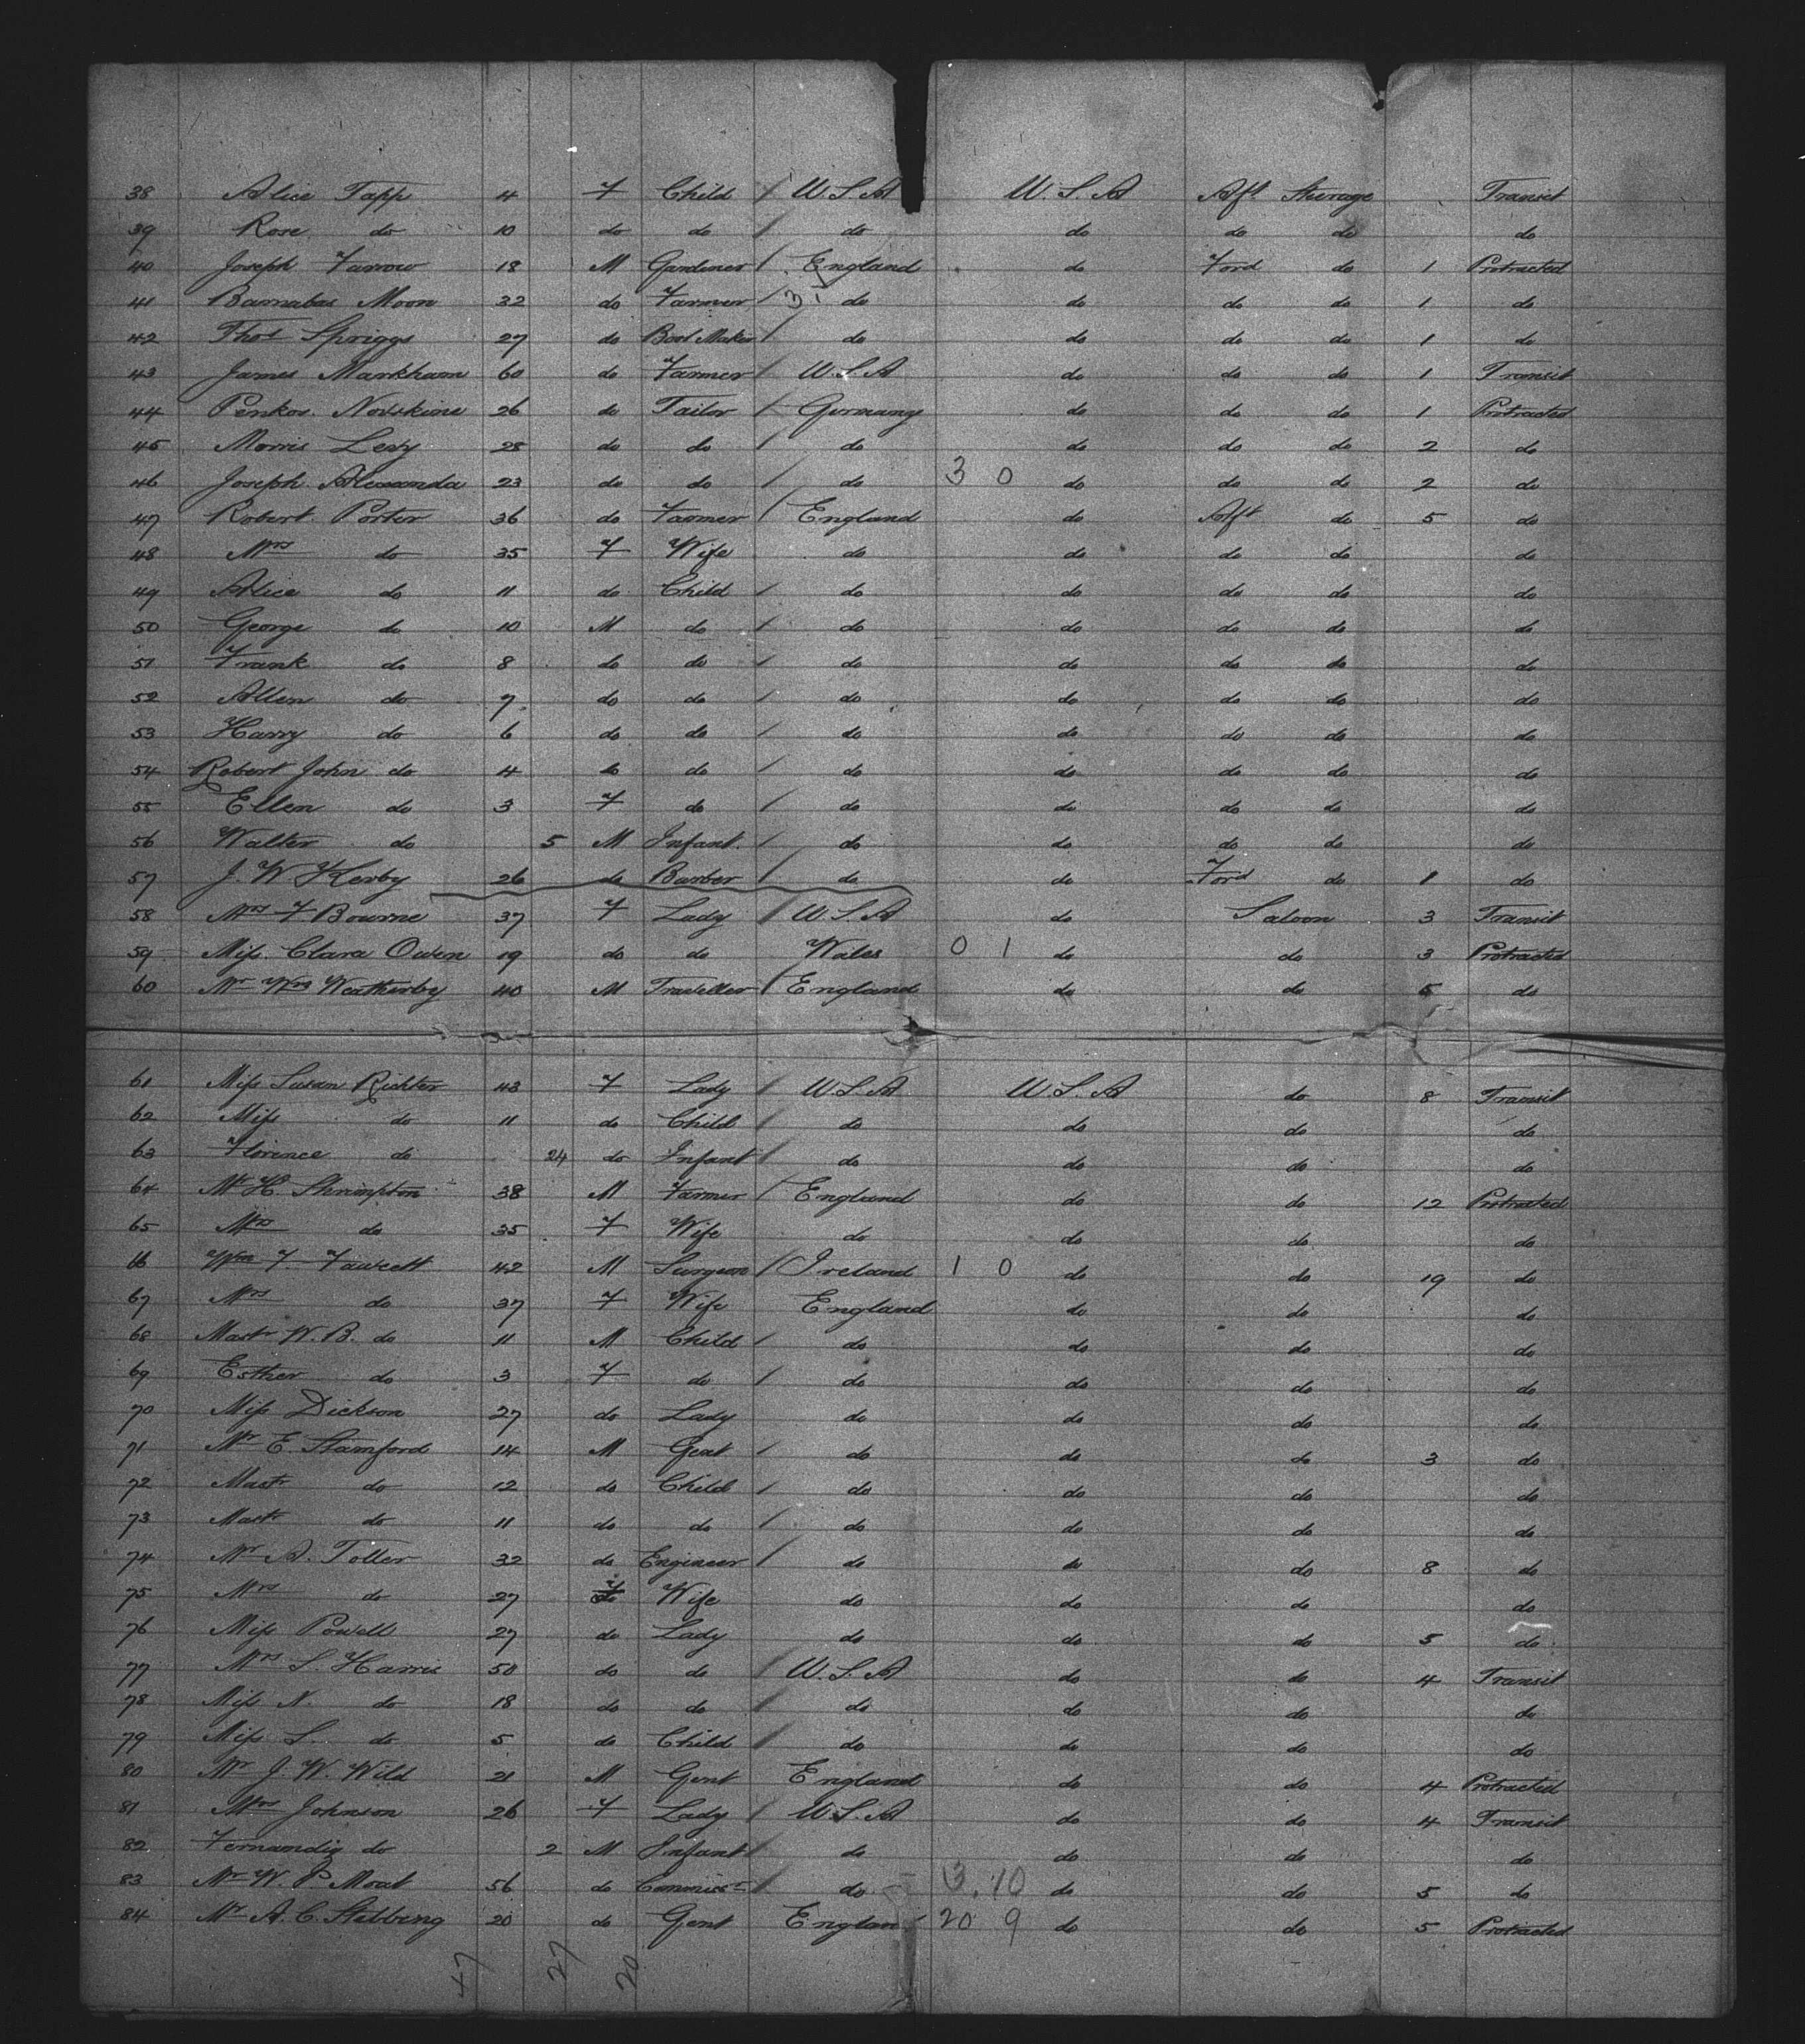 38 Alice Tapp 4 F Child / U.S.A U.S.A Aft Steerage Transit
39 Rose do 10 do do / do do do do do
40 Joseph Farrow 18 M Gardiner / England do Ford do 1 Protracted
41 Barnabas Moon 32 do Farmer / 31 do do do do 1 do
42 Thos Spriggs 27 do Boot Maker / do do do do 1 do
43 James Markham 60 do Farmer / U.S.A do do do 1 Transit
44 Penkos. Novskine 26 do Tailor / Germany do do do 1 Protracted
45 Morris Levy 25 do do / do do do do 2 do
46 Joseph 23 do do / do 3 0 do do do 2 do
47 Robert Porter 36 do Farmer / England do Aft do 5 do
48 Mrs do 35 F Wife do do do do do
49 Alice do 11 do Child / do do do do do
50 George do 10 M do / do do do do do
51 Frank do 8 do do / do do do do do
52 Allen do 7 do do / do do do do do
53 Harry do 6 do do / do do do do do
54 Robert John do 4 do do / do do do do do
55 Ellen do 3 F do / do do do do do
56 Walter do 5 M Infant / do do do do do
57 J. W Kerby 26 do Barber / do do Ford do 1 do
58 Mrs F Bourne 37 F Lady / U.S.A do Saloon 3 Transit
59 Miss. Clara Owen 19 do do Wales 0 1 do do 3 Protracted
60 Mr Wm Weatherby 40 M Traveller / England do do 5 do
61 Miss Susan Richter 43 F Lady / U.S.A U.S.A do 8 Transit
62 Miss do 11 do Child / do do do do
63 Florence do 24 do Infant / do do do do
64 Mr H. Shrimpton 38 M Farmer / England do do 12 Protracted
65 Mrs do 35 F Wife do do do do
66 Wm F. Fawcett 42 M Surgeon / Ireland 1 0 do do 19 do
67 Mrs do 37 F Wife England do do do
68 Mastr W. B. do 11 M Child / do do do do
69 Esther do 3 F do / do do do do
70 Miss Dickson 27 do Lady do do do do
71 Mr E. Stamford 14 M Gent / do do do 3 do
72 Mastr do 12 do Child / do do do do
73 Mastr do 11 do do / do do do do
74 Mr A. Toller 32 do Engineer / do do do 8 do
75 Mrs do 27 F Wife do do do do
76 Miss Powell 27 do Lady do do do 5 do
77 Mrs S. Harris 50 do do / U.S.A do do 4 Transit
78 Miss N. do 18 do do / do do do do
79 Miss S. do 5 do Child / do do do do
80 Mr J. W. Wild 21 M Gent England do do 4 Protracted
81 Mrs Johnson 26 F Lady / U.S.A do do 4 Transit
82 do 2 M Infant / do do do do
83 Mr W. P. Moat 56 do / do 3.10 do do 5 do
84 Mr A. C. Stebbing 20 do Gent Englan 20 9 do do 5 Protracted
47 27 20